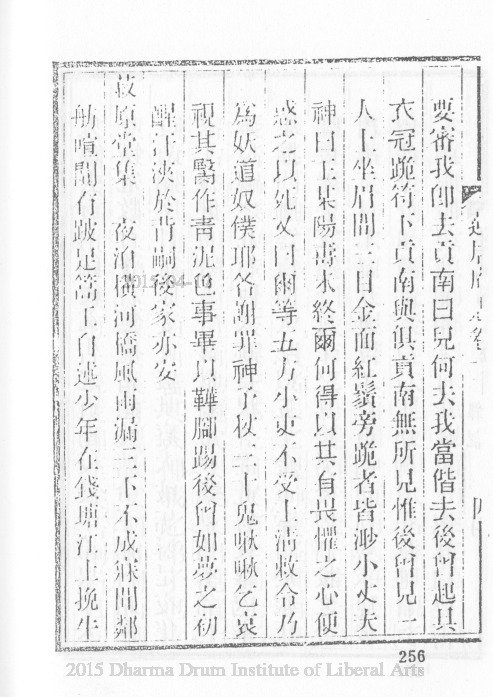 要審我卽去貢南曰兒何去我當偕去後曾起具
衣冠跪符下貢南與俱貢南無所見惟後曾見一
人上坐眉間三目金面紅鬚旁跪者皆渺小丈夫
神曰王某陽壽未終爾何得以其有畏懼之心便
惑之以死又曰爾等五方小吏不受上清敕令乃
為妖道奴僕耶各謝罪神予杖三十鬼啾啾乞哀
視其臀作青泥色事畢以鞾腳踢後曾如夢之初
醒汗浹於背嗣後家亦安
菽原堂集 夜泊橫河橋風雨漏三下不成寐聞鄰
舫喧閧有跛足篙工自述少年在錢塘江上挽牛
256
2015 Dharma Drum Institute of Liberal Arts